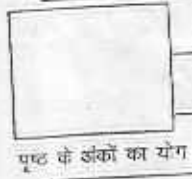 पृष्ठ के अंकों का योग